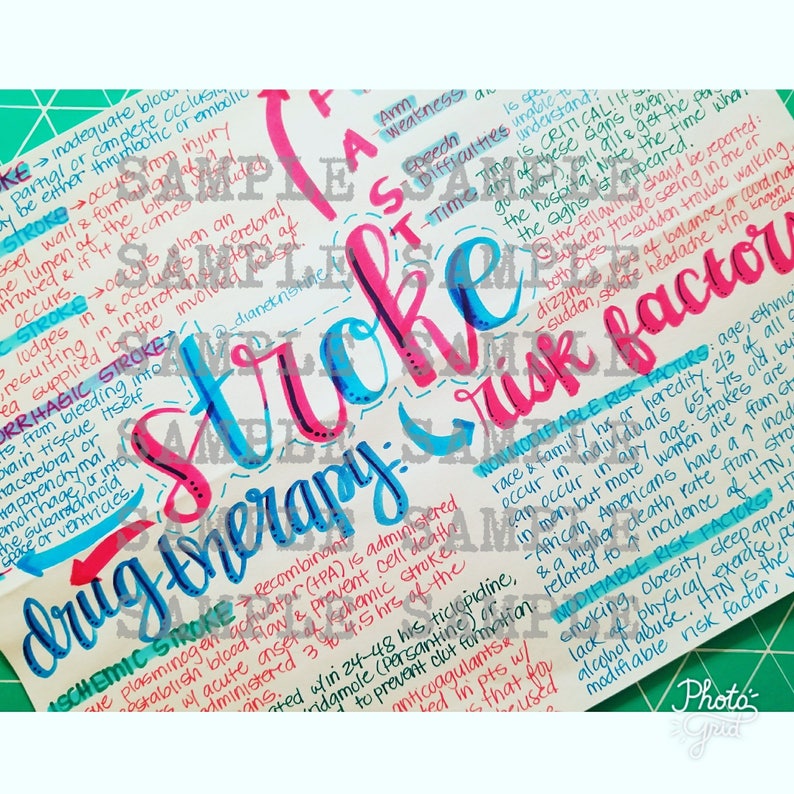 OKE → inadequate blood
partial or complete occlusion
ay be either thrombotic or embolic
STROKE → occurs from injury
essel wall & formation of a
the lumen of the blood vsl
arrowed & if it becomes occluded
occurs.
IC STROKE → occurs when an
lodges in & occludes a cerebral
resulting in infarction & edema of
supplied by the involved vessel.
ORRHAGIC STROKE →
ts from bleeding into
brain tissue itself
racerebral or
traparenchymal
emorrhage) or into
the subarachnoid
space or ventricles
@_dianekristine
F
A
S
T
Arm
weakness
Speech
Difficulties
Time
is spee
unable to
understand?
Time is CRITICAL! IF s
any of these signs (even if
go away), call & get the per
the hospital. Note the time when
the signs 1st appeared.
The following should be reported:
sudden trouble seeing in one or
both eyes - sudden trouble walking
dizziness, loss of balance or coordinati
sudden, severe headache w/ no known cau
stroke
risk factors
NONMODIFIABLE RISK FACTORS: age, ethnici
race & family hx or heredity. 2/3 of all s
occur in individuals 65+ yrs old, but
can occur at any age. Strokes are
in men, but more women die from s
African Americans have a ↑
& a higher death rate from stro
related to ↑ incidence of HTN,
MODIFIABLE RISK FACTORS:
smoking, obesity, sleep apnea
lack of physical exercise,
alcohol abuse. HTN is the
modifiable risk factor,
drug therapy:
ISCHEMIC STROKE → Recombinant
sue plasminogen activator (tPA) is administered
reestablish blood flow & prevent cell death
pts w/ acute onset of ischemic stroke
administered 3 to 4.5 hrs of the
ated w/in 24-48 hrs ticlopidine,
ridamole (Persantine)
to prevent clot formation.
anticoagulants &
ed in pts w/
is that for
be used
SAMPLE SAMPLE
SAMPLE SAMPLE
SAMPLE SAMPLE
SAMPLE SAMPLE
SAMPLE SAMPLE
SAMPLE SAMPLE
SAMPLE SAMPLE
Photo
Grid